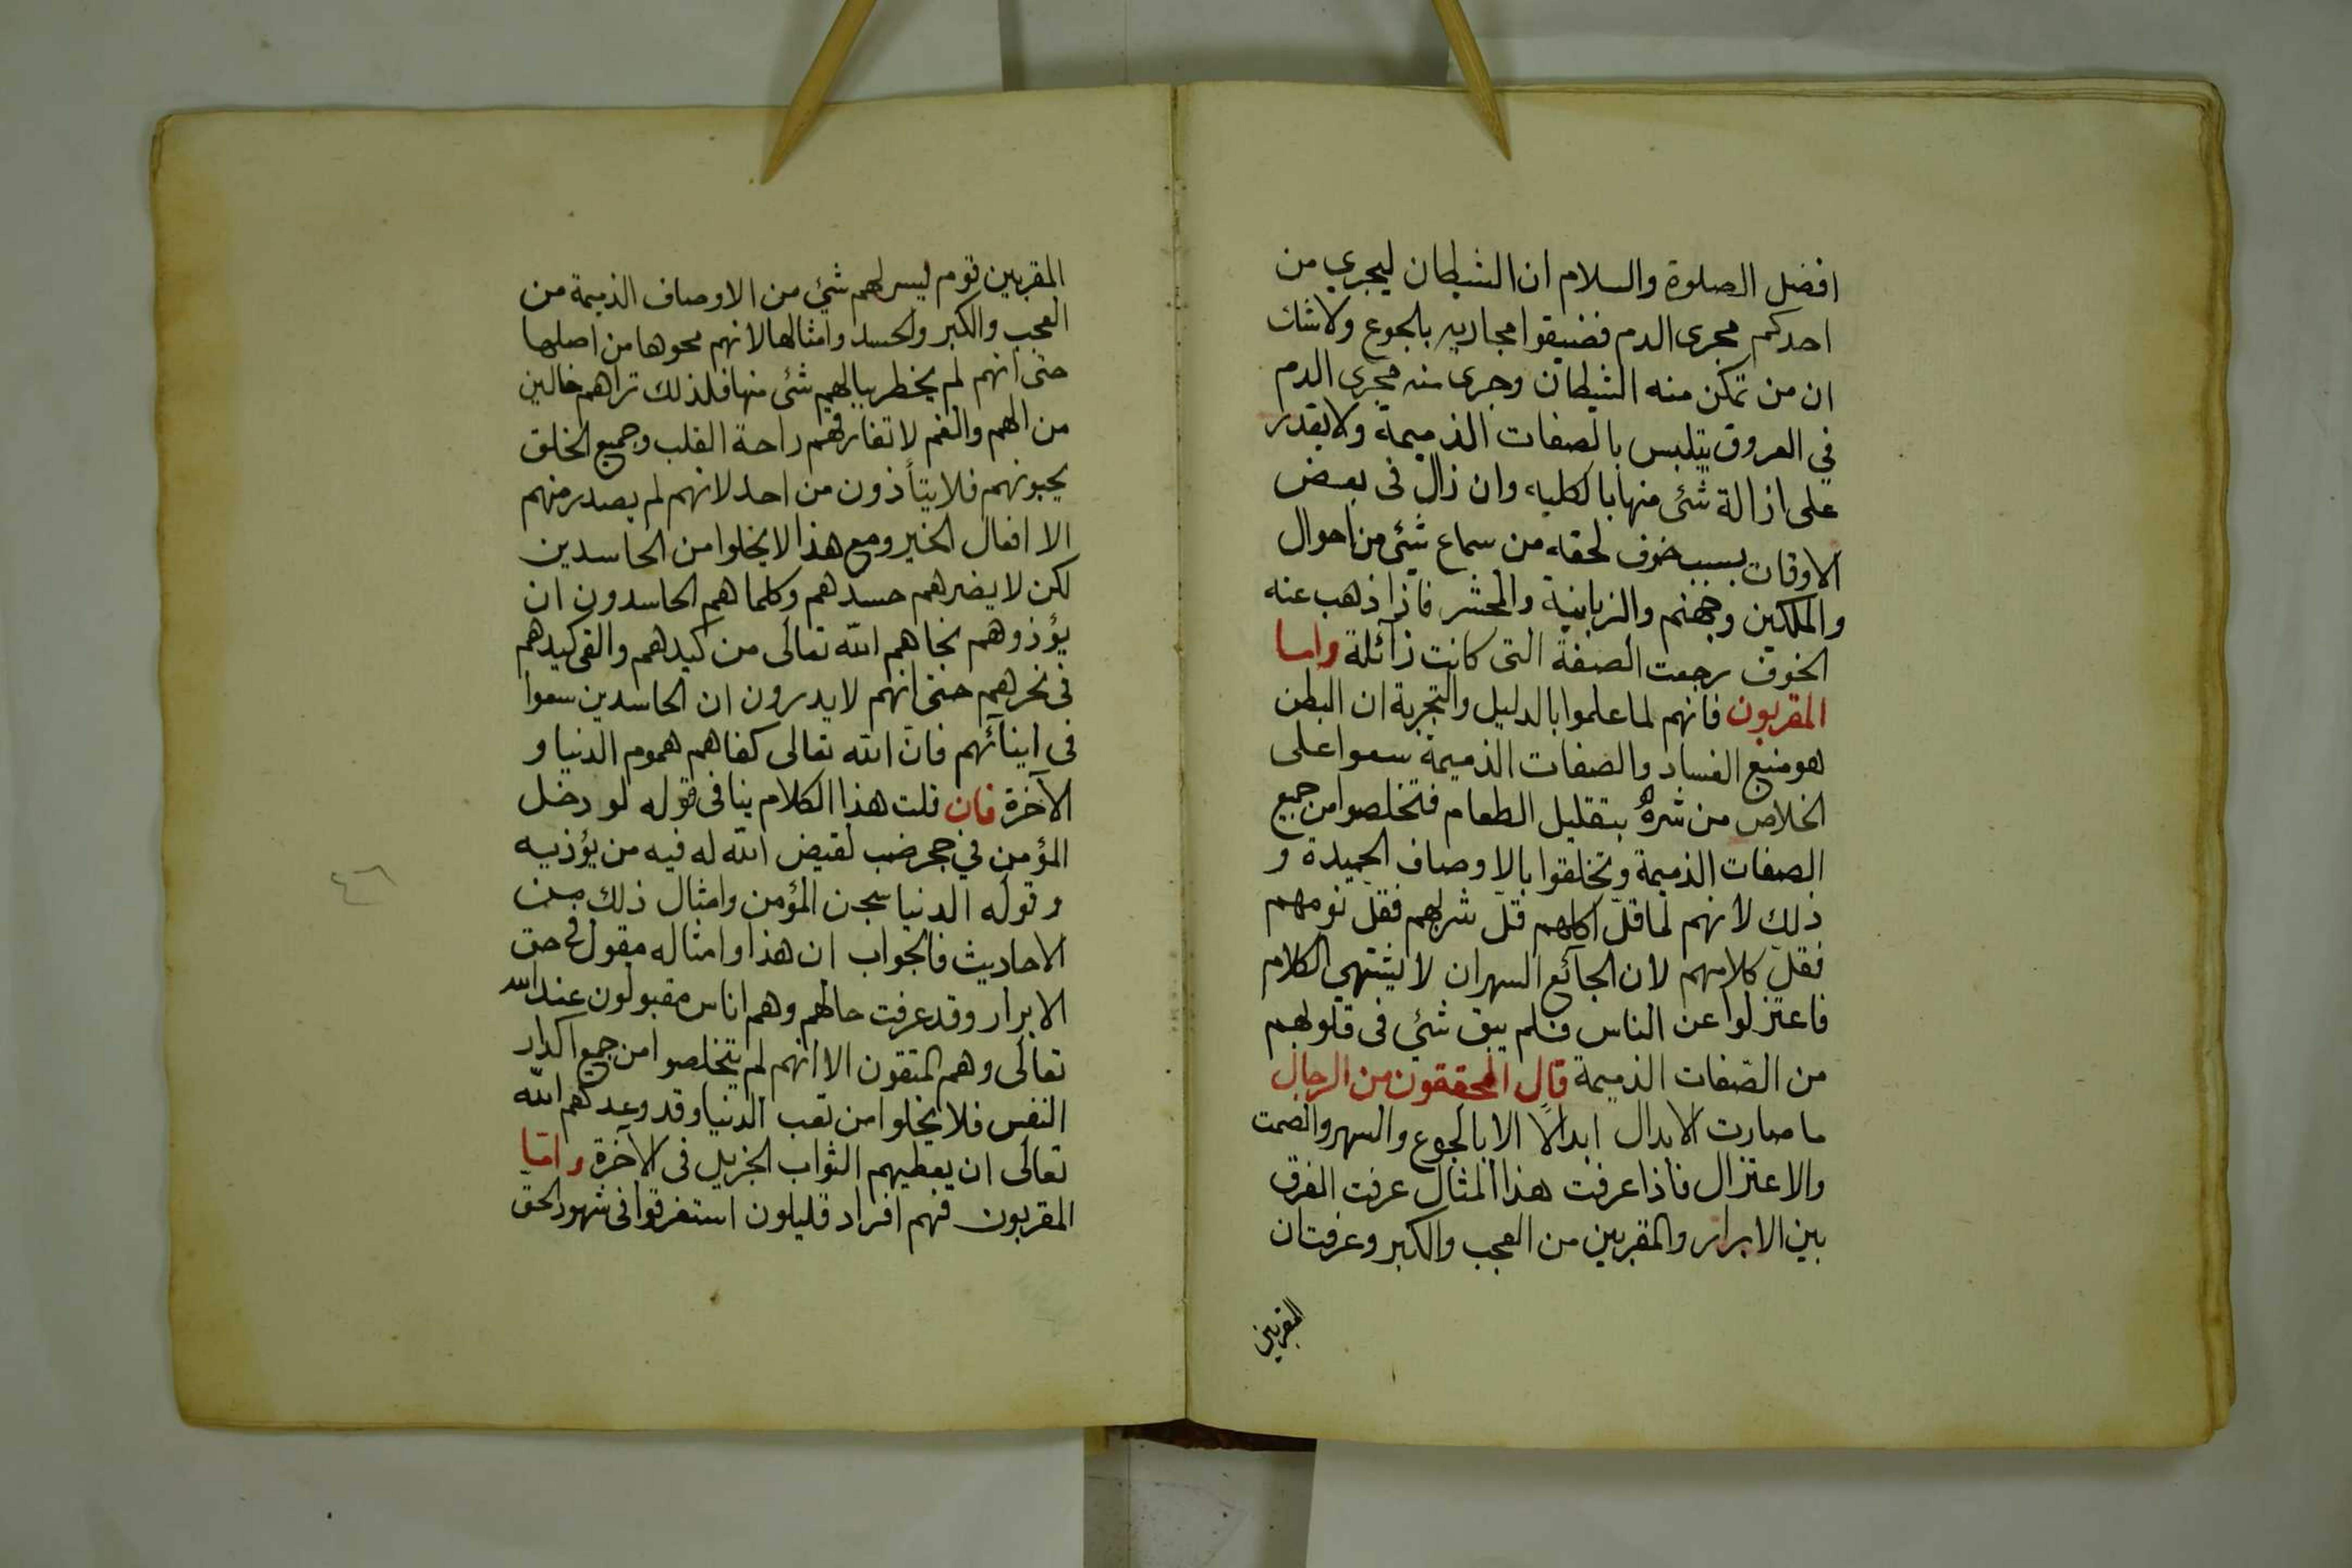 افضل الصلوة والسلام ان الشيطان ليجري من
احدكم مجرى الدم فضيقوا مجاريه بالجوع ولا شك
ان من تمكن منه الشيطان وجرى منه مجرى الدم
في العروق يتلبس بالصفات الذميمة ولا يقدر
على ازالة شئ منها بالكليه وان زال فى بعض
الاوقات بسبب خوف لحقه من سماع شئ من احوال
والملكين وجهنم والزبانية والمحشر فاذا ذهب عنه
الخوف رجعت الصفة التى كانت زآئلة واما
المقربون فانهم لما علموا بالدليل والتجربة ان البطن
هو منبع الفساد والصفات الذميمة سعوا على
الخلاص من شره بتقليل الطعام فتخلصوا من جميع
الصفات الذميمة وتخلقوا بالاوصاف الحميدة و
ذلك لانهم لما قلّ اكلهم قلّ شربهم فقلّ نومهم
فقلّ كلامهم لان الجآئع السهران لا يشتهي الكلام
فاعتزلوا عن الناس فلم يبق شئ فى قلوبهم
من الصّفات الذميمة قال المحققون من الرجال
ما صارت الابدال ابدالًا الا بالجوع والسهر والصمت
والاعتزال فاذا عرفت هذا المثال عرفت الفرق
بين الابرار والمقربين من العجب والكبر وعرفت ان
المقربين
المقربين قوم ليس لهم شئ من الاوصاف الذميمة من
العجب والكبر والحسد وامثالها لانهم محوها من اصلها
حتى انهم لم يخطر ببالهم شئ منها فلذلك تراهم خالين
من الهم والغم لا تفارقهم راحة القلب وجميع الخلق
يحبونهم فلا يتأذون من احد لانهم لم يصدر منهم
الا افعال الخير ومع هذا لا يخلوا من الحاسدين
لكن لا يضرهم حسدهم وكلما هم الحاسدون ان
يؤذوهم نجاهم الله تعالى من كيدهم والقى كيدهم
فى نحرهم حتى انهم لا يدرون ان الحاسدين سعوا
فى ايذآئهم فانّ الله تعالى كفاهم هموم الدنيا و
الآخرة فان قلت هذا الكلام ينافى قوله لو دخل
المؤمن في جحر ضب لقيض الله له فيه من يؤذيه
وقوله الدنيا سجن المؤمن وامثال ذلك من
الاحاديث فالجواب ان هذا وامثاله مقول فى حق
الابرار وقد عرفت حالهم وهم اناس مقبولون عند الله
تعالى وهم المتقون الا انهم لم يتخلصوا من جميع اكدار
النفس فلا يخلوا من تعب الدنيا وقد وعدكهم الله
تعالى ان يعطيهم الثواب الجزيل فى الآخرة وامّا
المقربون فهم افراد قليلون استغرقوا فى شهود الحق
٤٦